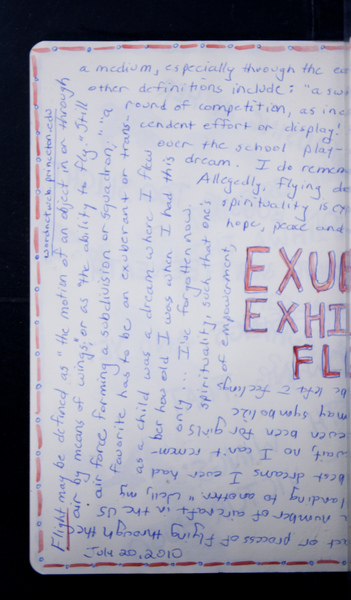 wordnetweb.princeton.edu
Flight may be defined as "the motion of an object in or through
air by means of wings", or as "the ability to fly." Still
air force forming a subdivision or squadron;" "a
favorite has to be "an exuberant or trans-
as a child was a dream where I flew
ber how old I was when I had this
only ... I've forgotten now.
spirituality, such that one's
of empowerment,
a medium, especially through the
other definitions include: "a
round of competition, as
cendent effort or display."
over the school play-
dream. I do remem
Allegedly, flying
spirituality is
hope, peace and
EXU
EXHI
FL
or process of flying through the
number of aircraft in the US
landing to another." Well, my
best dreams I ever had
wait, no I can't remem-
even been for girls
may symbolize
be left feelings
2010